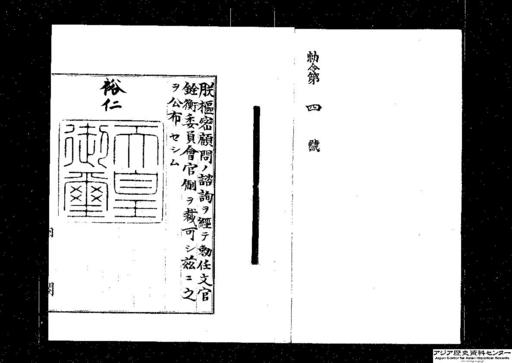 勅令第四號
朕樞密顧問ノ諮詢ヲ經テ勅任文官
銓衡委員會官制ヲ裁可シ茲ニ之
ヲ公布セシム
裕仁
天皇
御璽
アジア歴史資料センター
Japan Center for Asian Historical Records